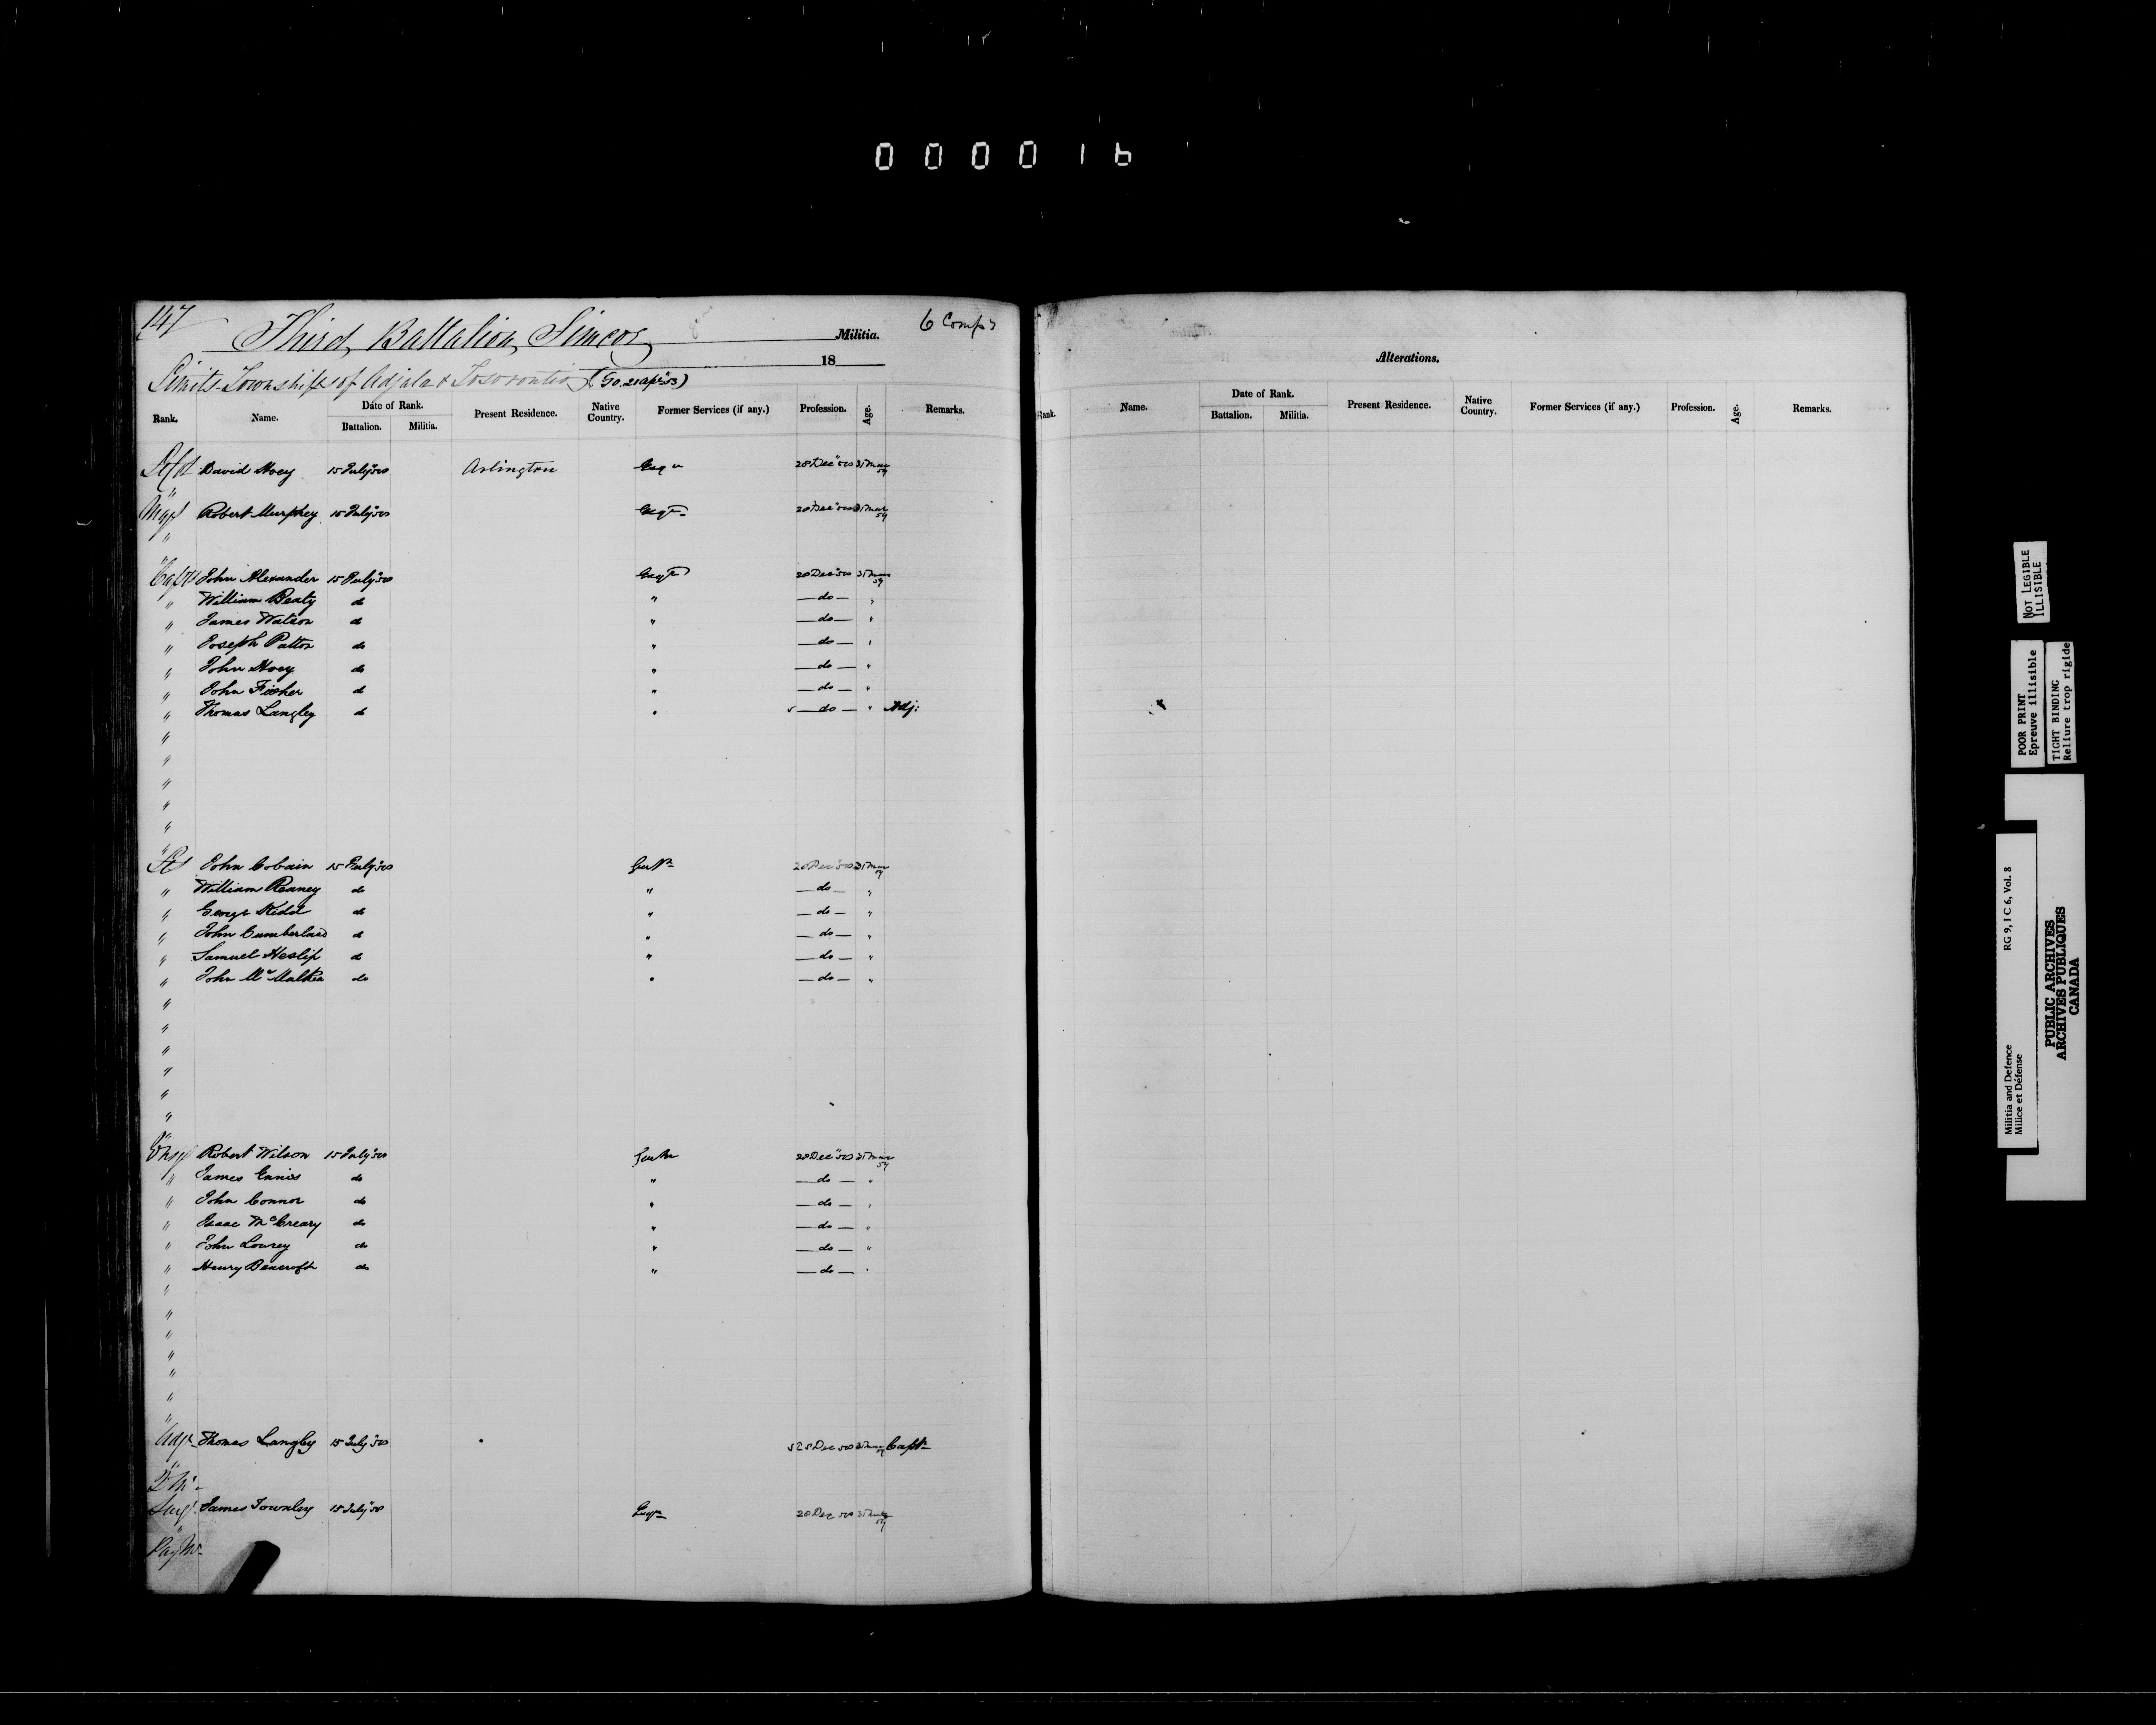 000016
147
Third Battalion, Simcoe Militia. 6 Comps
18
Limits Townships of Adjala & Tosorontio (GO. 21 Apl "53)
Rank. Name. Date of Rank. Battalion. Militia. Present Residence. Native Country. Former Services (if any.) Profession. Age. Remarks.
David Hoey 15 July "50 Arlington 20 Dec "50 31 Mar 54
Majr Robert Murphey 15 July "50 Esqre 20 Dec "50 31 Mar 54
"
Capts John Alexander 15 July "50 Esqre 20 Dec "50 31 Mar 54
" William Beaty do " — do — "
" James Watson do " — do — "
" Joseph Patton do " — do — "
" John Hoey do " — do — "
" John Fisher do " — do — "
" Thomas Langley do " — do — " Adj:
"
"
"
"
"
Lt John Cobain 15 July "50 Gentn 20 Dec "50 31 Mar 54
" William Reaney do " — do — "
" George Kidd do " — do — "
" John Cumberland do " — do — "
" Samuel Heslip do " — do — "
" John do " — do — "
"
"
"
"
"
"
Ensg Robert Wilson 15 July "50 Gentn 20 Dec "50 31 Mar 54
" James Ennis do " — do — "
" John Connor do " — do — "
" Isaac McCreary do " — do — "
" John Lowrey do " — do — "
" Henry Beacroft do " — do — "
"
"
"
"
"
"
"
Adjt Thomas Langley 15 July "50 20 Dec 50 31 Mar 54 Capt
Q.M.
Surg. James Townley 15 July "50 Esqre 20 Dec 50 31 Mar 54
Pay Mr
Alterations.
Rank. Name. Date of Rank. Battalion. Militia. Present Residence. Native Country. Former Services (if any.) Profession. Age. Remarks.
NOT LEGIBLE
ILLISIBLE
POOR PRINT
Epreuve illisible
TIGHT BINDING
Reliure trop rigide
Militia and Defence
Milice et Défense
RG 9, I C 6, Vol. 8
PUBLIC ARCHIVES
ARCHIVES PUBLIQUES
CANADA